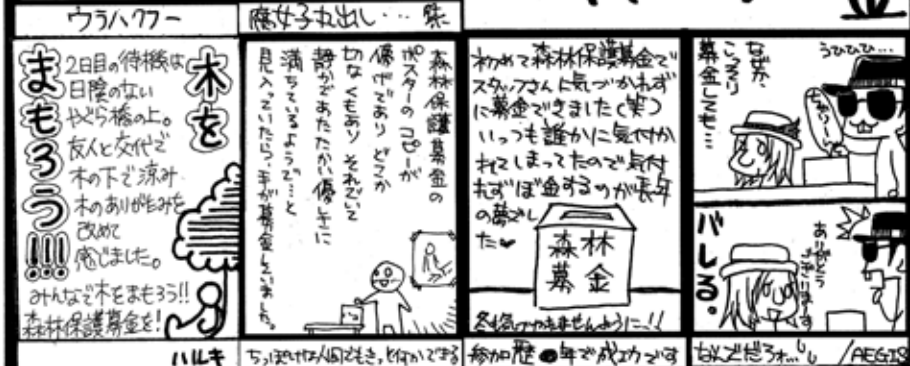 ウラハクフー
木を
まもろう!!!
2日目の待機は
日陰のない
やぐら橋の上。
友人と交代で
木の下で涼み
木のありがたみを
改めて
感じました。
みんなで木をまもろう!!
森林保護募金を!
ハルキ
腐女子丸出し…
森林保護募金の
ポスターのコピーが
儚げであり どこか
切なくもあり それでいて
静かであたたかい優しさに
満ちているようで…と
見入っていたら、手が募金していました。
ちっぽけな人間でもきっと何かできる
初めて森林保護募金で
スタッフさんに気づかれず
に募金できました(笑)
いっつも誰かに気付か
れてしまってたので気付
れずぼ金するのが長年
の夢でし
た♥
森林
募金
参加歴●年で成功です
うひひひ…
なぜか、
こっそり
募金しても…
バレる。
ありがとう
ございまーす
なんでだろォ…
/AEGIS